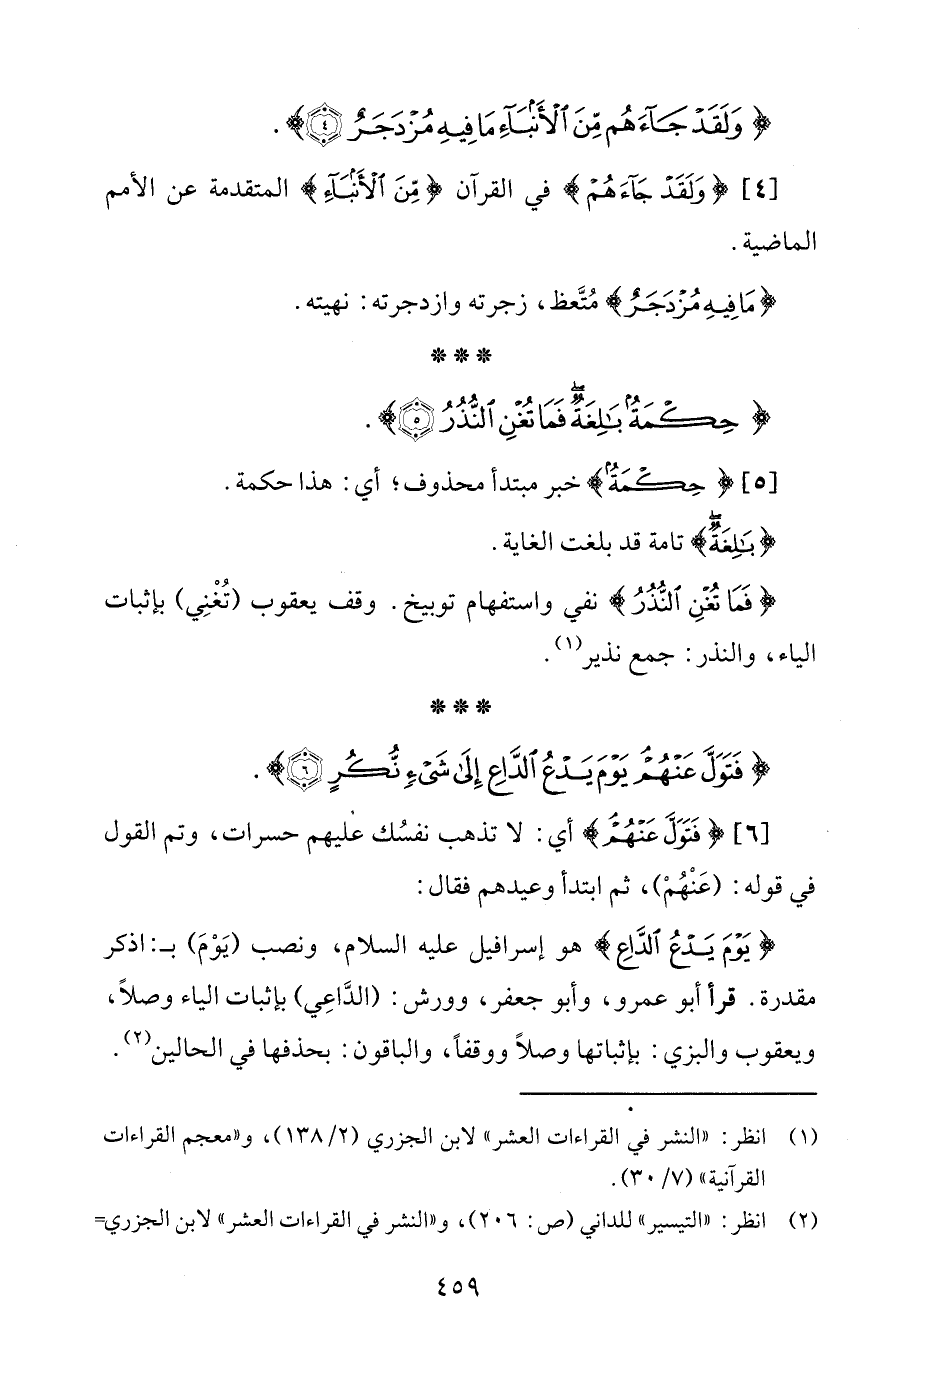 ﴿ وَلَقَدْ جَآءَهُم مِّنَ ٱلْأَنۢبَآءِ مَا فِيهِ مُزْدَجَرٌ ۝٤ ﴾ .
[٤] ﴿ وَلَقَدْ جَآءَهُمْ ﴾ في القرآن ﴿ مِّنَ ٱلْأَنۢبَآءِ ﴾ المتقدمة عن الأمم
الماضية .
﴿ مَا فِيهِ مُزْدَجَرٌ ﴾ مُتَّعظ، زجرته وازدجرته: نهيته .
* * *
﴿ حِكْمَةٌۢ بَٰلِغَةٌ ۖ فَمَا تُغْنِ ٱلنُّذُرُ ۝٥ ﴾ .
[٥] ﴿ حِكْمَةٌۢ ﴾ خبر مبتدأ محذوف؛ أي: هذا حكمة .
﴿ بَٰلِغَةٌ ۖ ﴾ تامة قد بلغت الغاية .
﴿ فَمَا تُغْنِ ٱلنُّذُرُ ﴾ نفي واستفهام توبيخ. وقف يعقوب (تُغْنِي) بإثبات
الياء، والنذر: جمع نذير(١) .
* * *
﴿ فَتَوَلَّ عَنْهُمْ يَوْمَ يَدْعُ ٱلدَّاعِ إِلَىٰ شَىْءٍ نُّكُرٍ ۝٦ ﴾ .
[٦] ﴿ فَتَوَلَّ عَنْهُمْ ﴾ أي: لا تذهب نفسُك عليهم حسرات، وتم القول
في قوله: (عَنْهُمْ)، ثم ابتدأ وعيدهم فقال:
﴿ يَوْمَ يَدْعُ ٱلدَّاعِ ﴾ هو إسرافيل عليه السلام، ونصب (يَوْمَ) بـ: اذكر
مقدرة. قرأ أبو عمرو، وأبو جعفر، وورش: (الدَّاعِي) بإثبات الياء وصلاً،
ويعقوب والبزي: بإثباتها وصلاً ووقفاً، والباقون: بحذفها في الحالين(٢) .
(١) انظر: «النشر في القراءات العشر» لابن الجزري (٢/ ١٣٨)، و«معجم القراءات
القرآنية» (٧/ ٣٠).
(٢) انظر: «التيسير» للداني (ص: ٢٠٦)، و«النشر في القراءات العشر» لابن الجزري=
٤٥٩